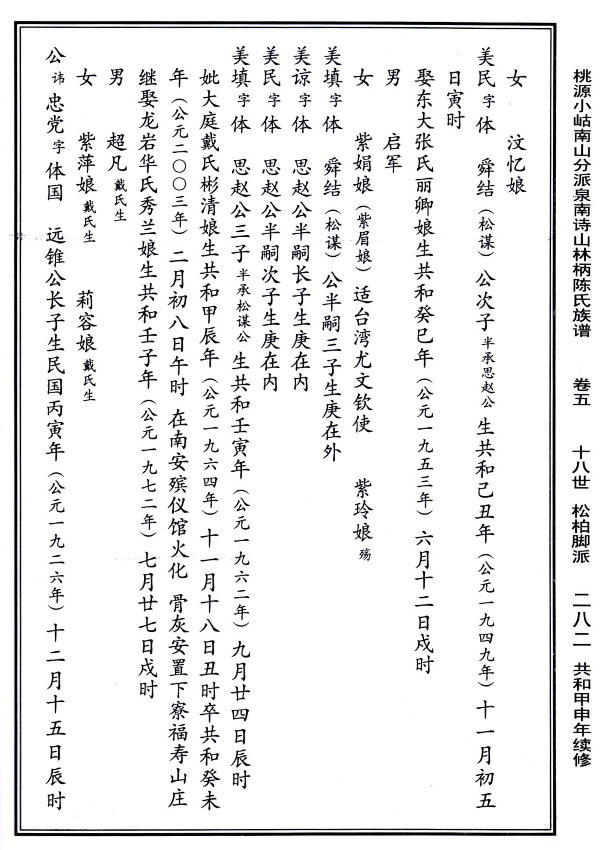 桃源小岵南山分派泉南诗山林柄陈氏族谱 卷五 十八世 松柏脚派 二八二 共和甲申年续修
女 汶忆娘
美民字体 舜结（松谋）公次子半承思赵公生共和己丑年（公元一九四九年）十一月初五
日寅时
娶东大张氏丽卿娘生共和癸巳年（公元一九五三年）六月十二日戌时
男 启军
女 紫娟娘（紫眉娘）适台湾尤文钦使 紫玲娘殇
美填字体 舜结（松谋）公半嗣三子生庚在外
美谅字体 思赵公半嗣长子生庚在内
美民字体 思赵公半嗣次子生庚在内
美填字体 思赵公三子半承松谋公生共和壬寅年（公元一九六二年）九月廿四日辰时
妣大庭戴氏彬清娘生共和甲辰年（公元一九六四年）十一月十八日丑时卒共和癸未
年（公元二〇〇三年）二月初八日午时 在南安殡仪馆火化 骨灰安置下寮福寿山庄
继娶龙岩华氏秀兰娘生共和壬子年（公元一九七二年）七月廿七日戌时
男 超凡戴氏生
女 紫萍娘戴氏生 莉容娘戴氏生
公讳忠党字体国 远锥公长子生民国丙寅年（公元一九二六年）十二月十五日辰时